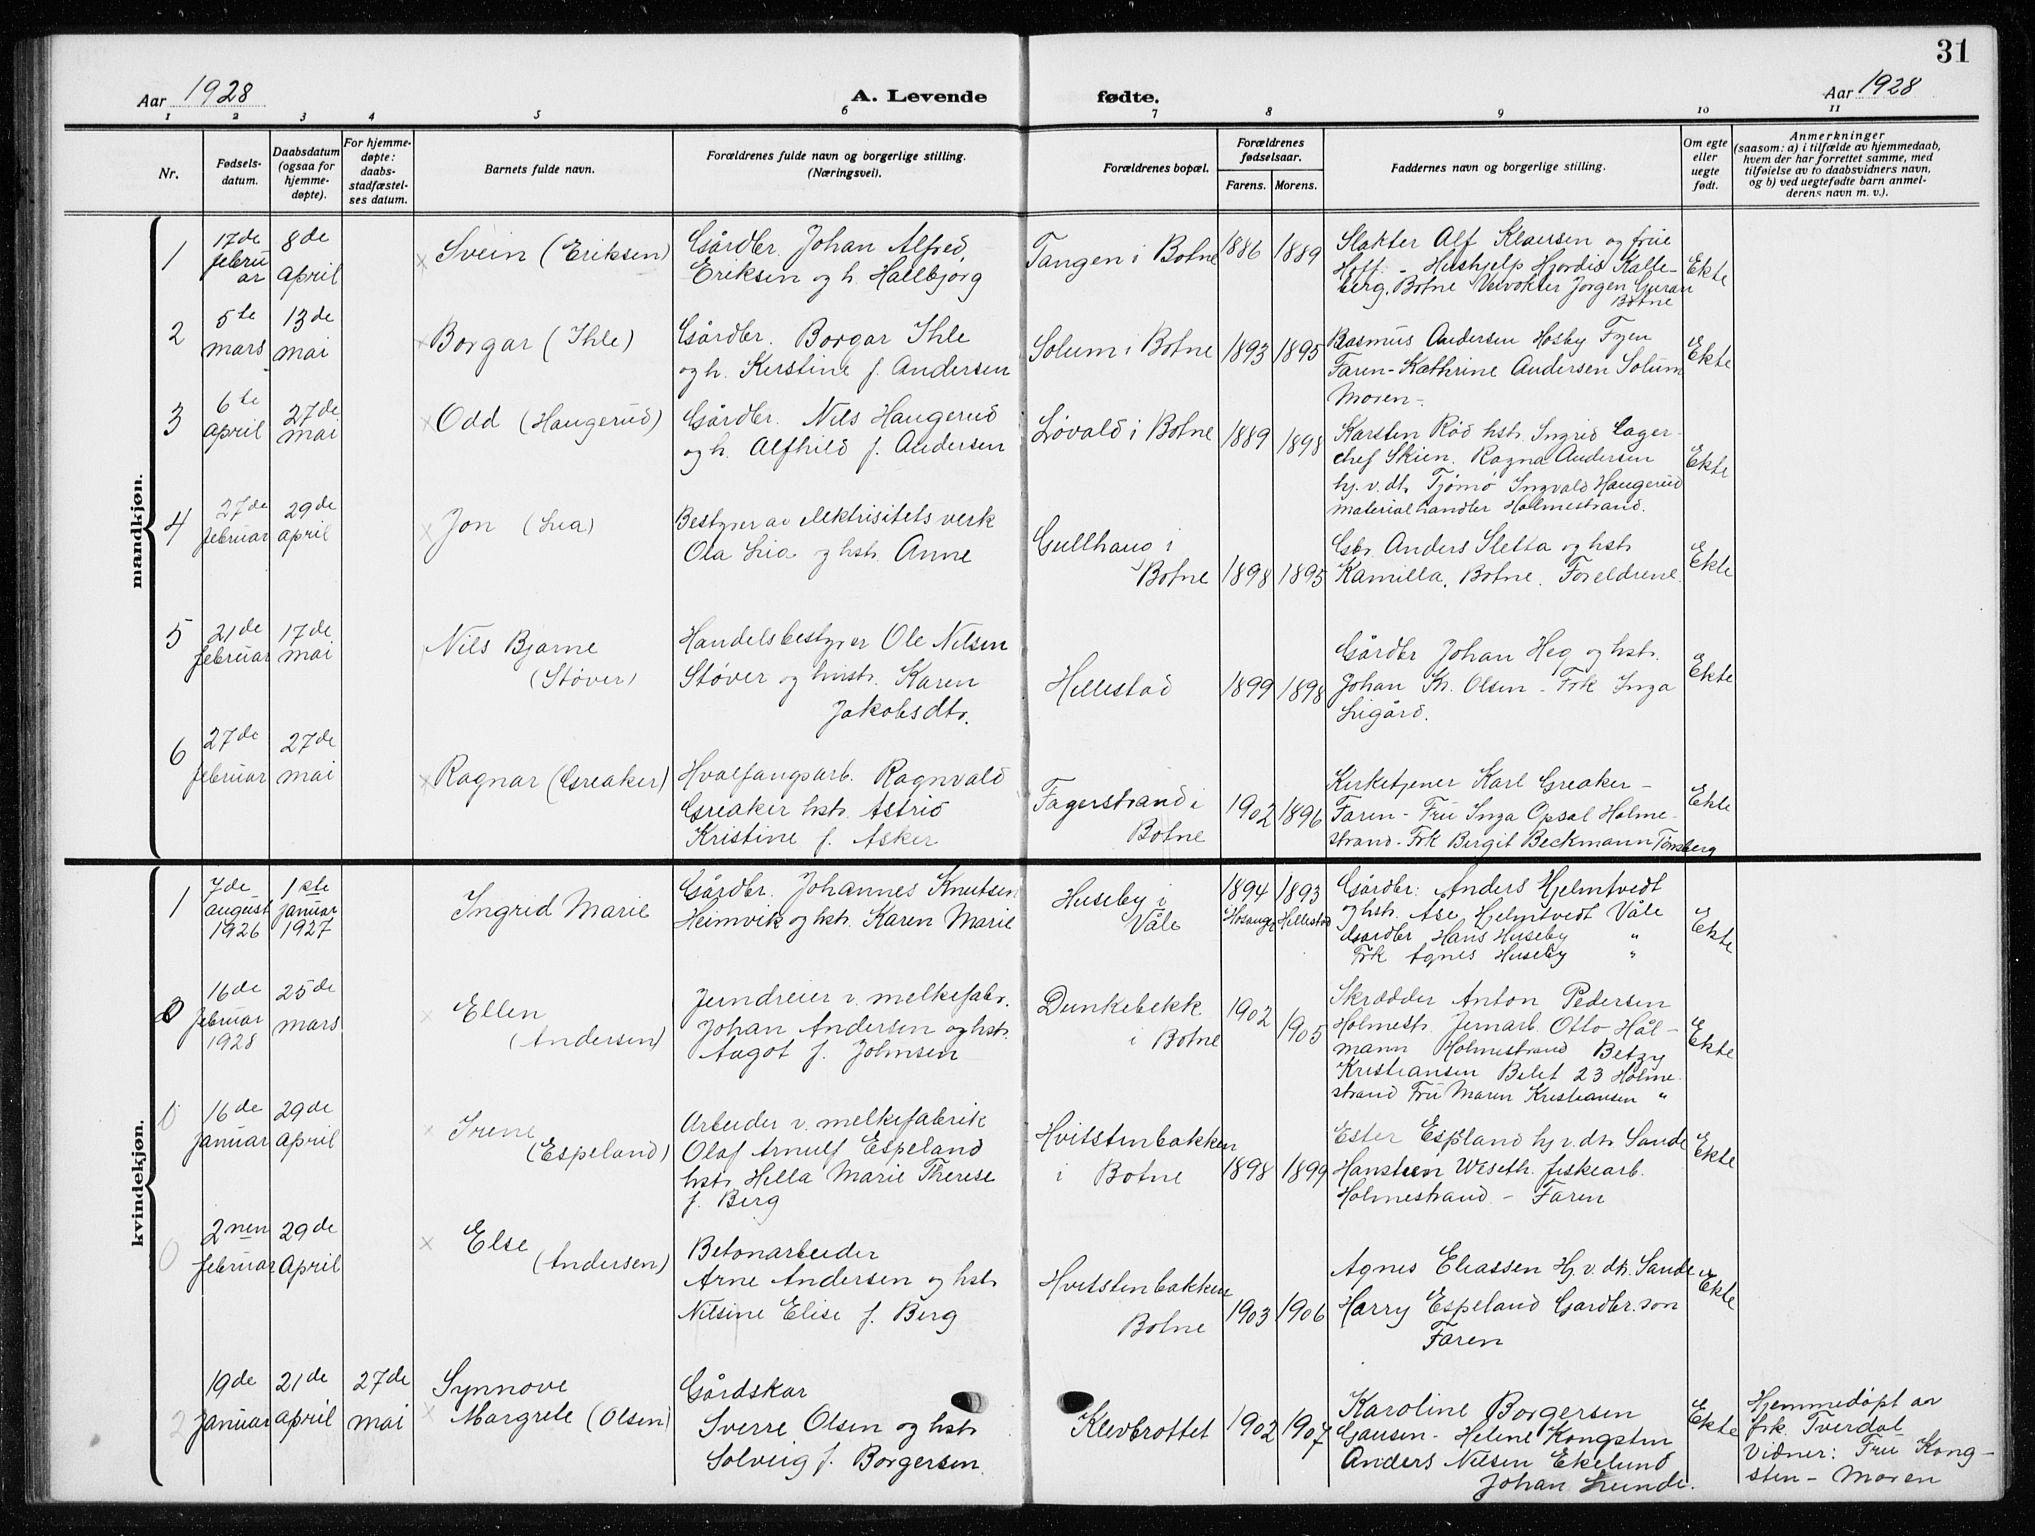 31
Aar 1928
A. Levende fødte.
Aar 1928
1 2 3 4 5 6 7 8 9 10 11
Nr.
Fødsels-
datum.
Daabsdatum
(ogsaa for
hjemme-
døpte).
For hjemme-
døpte:
daabs-
stadfæstel-
ses datum.
Barnets fulde navn.
Forældrenes fulde navn og borgerlige stilling.
(Næringsvei).
Forældrenes bopæl.
Forældrenes
fødselsaar.
Farens. Morens.
Faddernes navn og borgerlige stilling.
Om egte
eller
uegte
født.
Anmerkninger
(saasom: a) i tilfælde av hjemmedaab,
hvem der har forrettet samme, med
tilføielse av to daabsvidners navn,
og b) ved uegtefødte barn anmel-
derens navn m. v.).
mandkjøn.
1
17de
februar
ar
8de
april
Svein (Eriksen)
Gårdbr. Johan Alfred
Eriksen og h. Hallbjørg
Tangen i Botne
1886 1889
Slakter Alf Klausen og frue
Hoff - Hushjelp Hjordis Kalle-
berg, Botne Veivokter Jørgen
Botne
Ekte
2
5te
mars
13de
mai
Borgar (Ihle)
Gårdbr. Borgar Ihle
og h. Kerstine f. Andersen
Solum i Botne
1893 1895
Rasmus Andersen Hosby Fyen
Faren - Kathrine Andersen Solum
Moren -
Ekte
3
6te
april
27de
mai
Odd (Haugerud)
Gårdbr. Nils Haugerud
og h. Alfhild f. Andersen
Løvald i Botne
1889 1898
Karsten Rød hstr. Ingrid Lager-
chef Skien. Ragna Andersen
hj. v. dtr Tjømø Ingvald Haugerud
materialhandler Holmestrand.
Ekte
4
27de
februar
29de
april
Jon (Lia)
Bestyrer av elektrisitetsverk
Ola Lia og hstr. Anne
Gullhaug i
Botne
1898 1895
Gbr. Anders Sletta og hstr
Kamilla, Botne. Foreldrene.
Ekte
5
21de
februar
17de
mai
Nils Bjarne
(Støver)
Handelsbestyrer Ole Nilsen
Støver og hustr. Karen
Jakobsdtr.
Hillestad
1899 1898
Gårdbr Johan Heg og hstr.
Johan Kr. Olsen - Frk Inga
Ligård.
Ekte
6
27de
februar
27de
mai
Ragnar (Greaker)
Hvalfangsarb. Ragnvald
Greaker hstr. Astrid
Kristine f. Asker
Fagerstrand i
Botne
1902 1896
Kirketjener Karl Greaker -
Faren - Fru Inga Opsal Holme-
strand - Frk Birgit Beckmann Tønsberg
Ekte
kvindekjøn.
1
7de
august
1926
1ste
januar
1927
Ingrid Marie
Gårdbr. Johannes Knutsen
Heimvik og hstr. Karen Marie
Huseby i
Våle
1894 1893
i Hosanger Hillestad
Gårdbr: Anders Hjelmtvedt
og hstr. Åse Hjelmtvedt Våle
Gårdbr Hans Huseby "
Frk Agnes Huseby "
Ekte
0
16de
februar
1928
25de
mars
Ellen
(Andersen)
Jerndreier v. melkefabr.
Johan Andersen og hstr.
Aagot f. Johnsen
Dunkebekk
i Botne
1902 1905
Skrædder Anton Pedersen
Holmestr. Jernarb. Otto Hål-
mann Holmestrand Betzy
Kristiansen Bilet 23 Holme-
strand Fru Maren Kristiansen "
Ekte
0
16de
januar
29de
april
Irene
(Espeland)
Arbeider v. melkefabrik
Olaf Arnulf Espeland
hstr Hella Marie Therese
f. Berg
Hvitstenbakken
i Botne
1898 1899
Ester Espeland hj. v. dtr. Sande
Hansteen Weseth. fiskearb.
Holmestrand - Faren
Ekte
0
2nen
februar
29de
April
Else
(Andersen)
Betonarbeider
Arne Andersen og hstr
Nilsine Elise f. Berg
Hvitstenbakken
Botne
1903 1906
Agnes Eliassen Hj. v. dtr. Sande
Harry Espeland Gardbr. søn
Faren
Ekte
2
19de
januar
21de
april
27de
mai
Synnøve
Margrete (Olsen)
Gårdskar
Sverre Olsen og hstr
Solveig f. Borgersen
Klevbrottet
1902 1907
Karoline Borgersen
Gausen - Helene Kongsten
Anders Nilsen Ekelund
Johan Lunde.
Ekte
Hjemmedøpt av
frk. Tverdal
Vidner: Fru Kong-
sten - Moren